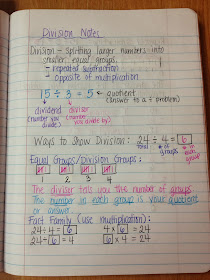 Division Notes
Division - Splitting larger numbers into
smaller equal groups.
→ repeated subtraction
→ opposite of multiplication
15 ÷ 3 = 5 ← quotient
(answer to a ÷ problem)
dividend
(number you divide)
divisor
(number you divide by)
Ways to Show Division: 24 ÷ 4 = 6
total
# of groups
# in each group
Equal Groups/Division Groups:
1 2 3 4
The divisor tells you the number of groups.
The number in each group is your quotient
or answer.
Fact Family (use multiplication):
24 ÷ 4 = 6 4 x 6 = 24
24 ÷ 6 = 4 6 x 4 = 24